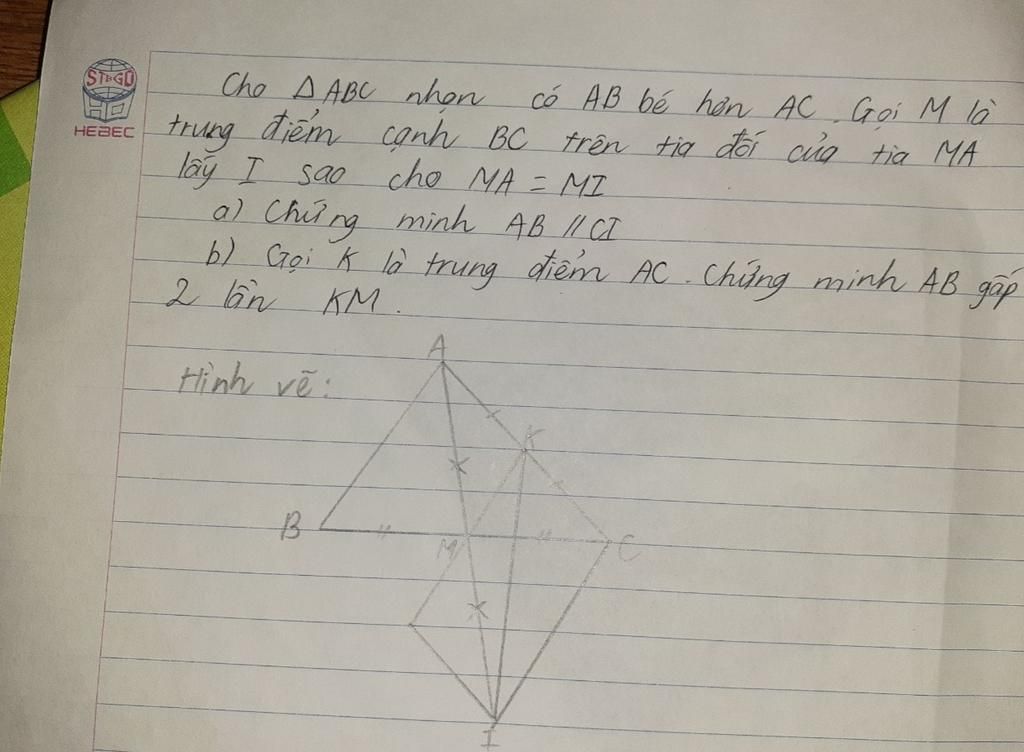 STBGO
HEBEC
Cho △ ABC nhọn có AB bé hơn AC. Gọi M là
trung điểm cạnh BC trên tia đối của tia MA
lấy I sao cho MA = MI
a) Chứng minh AB // CI
b) Gọi K là trung điểm AC. Chứng minh AB gấp
2 lần KM.
Hình vẽ:
A
K
B
M
C
I